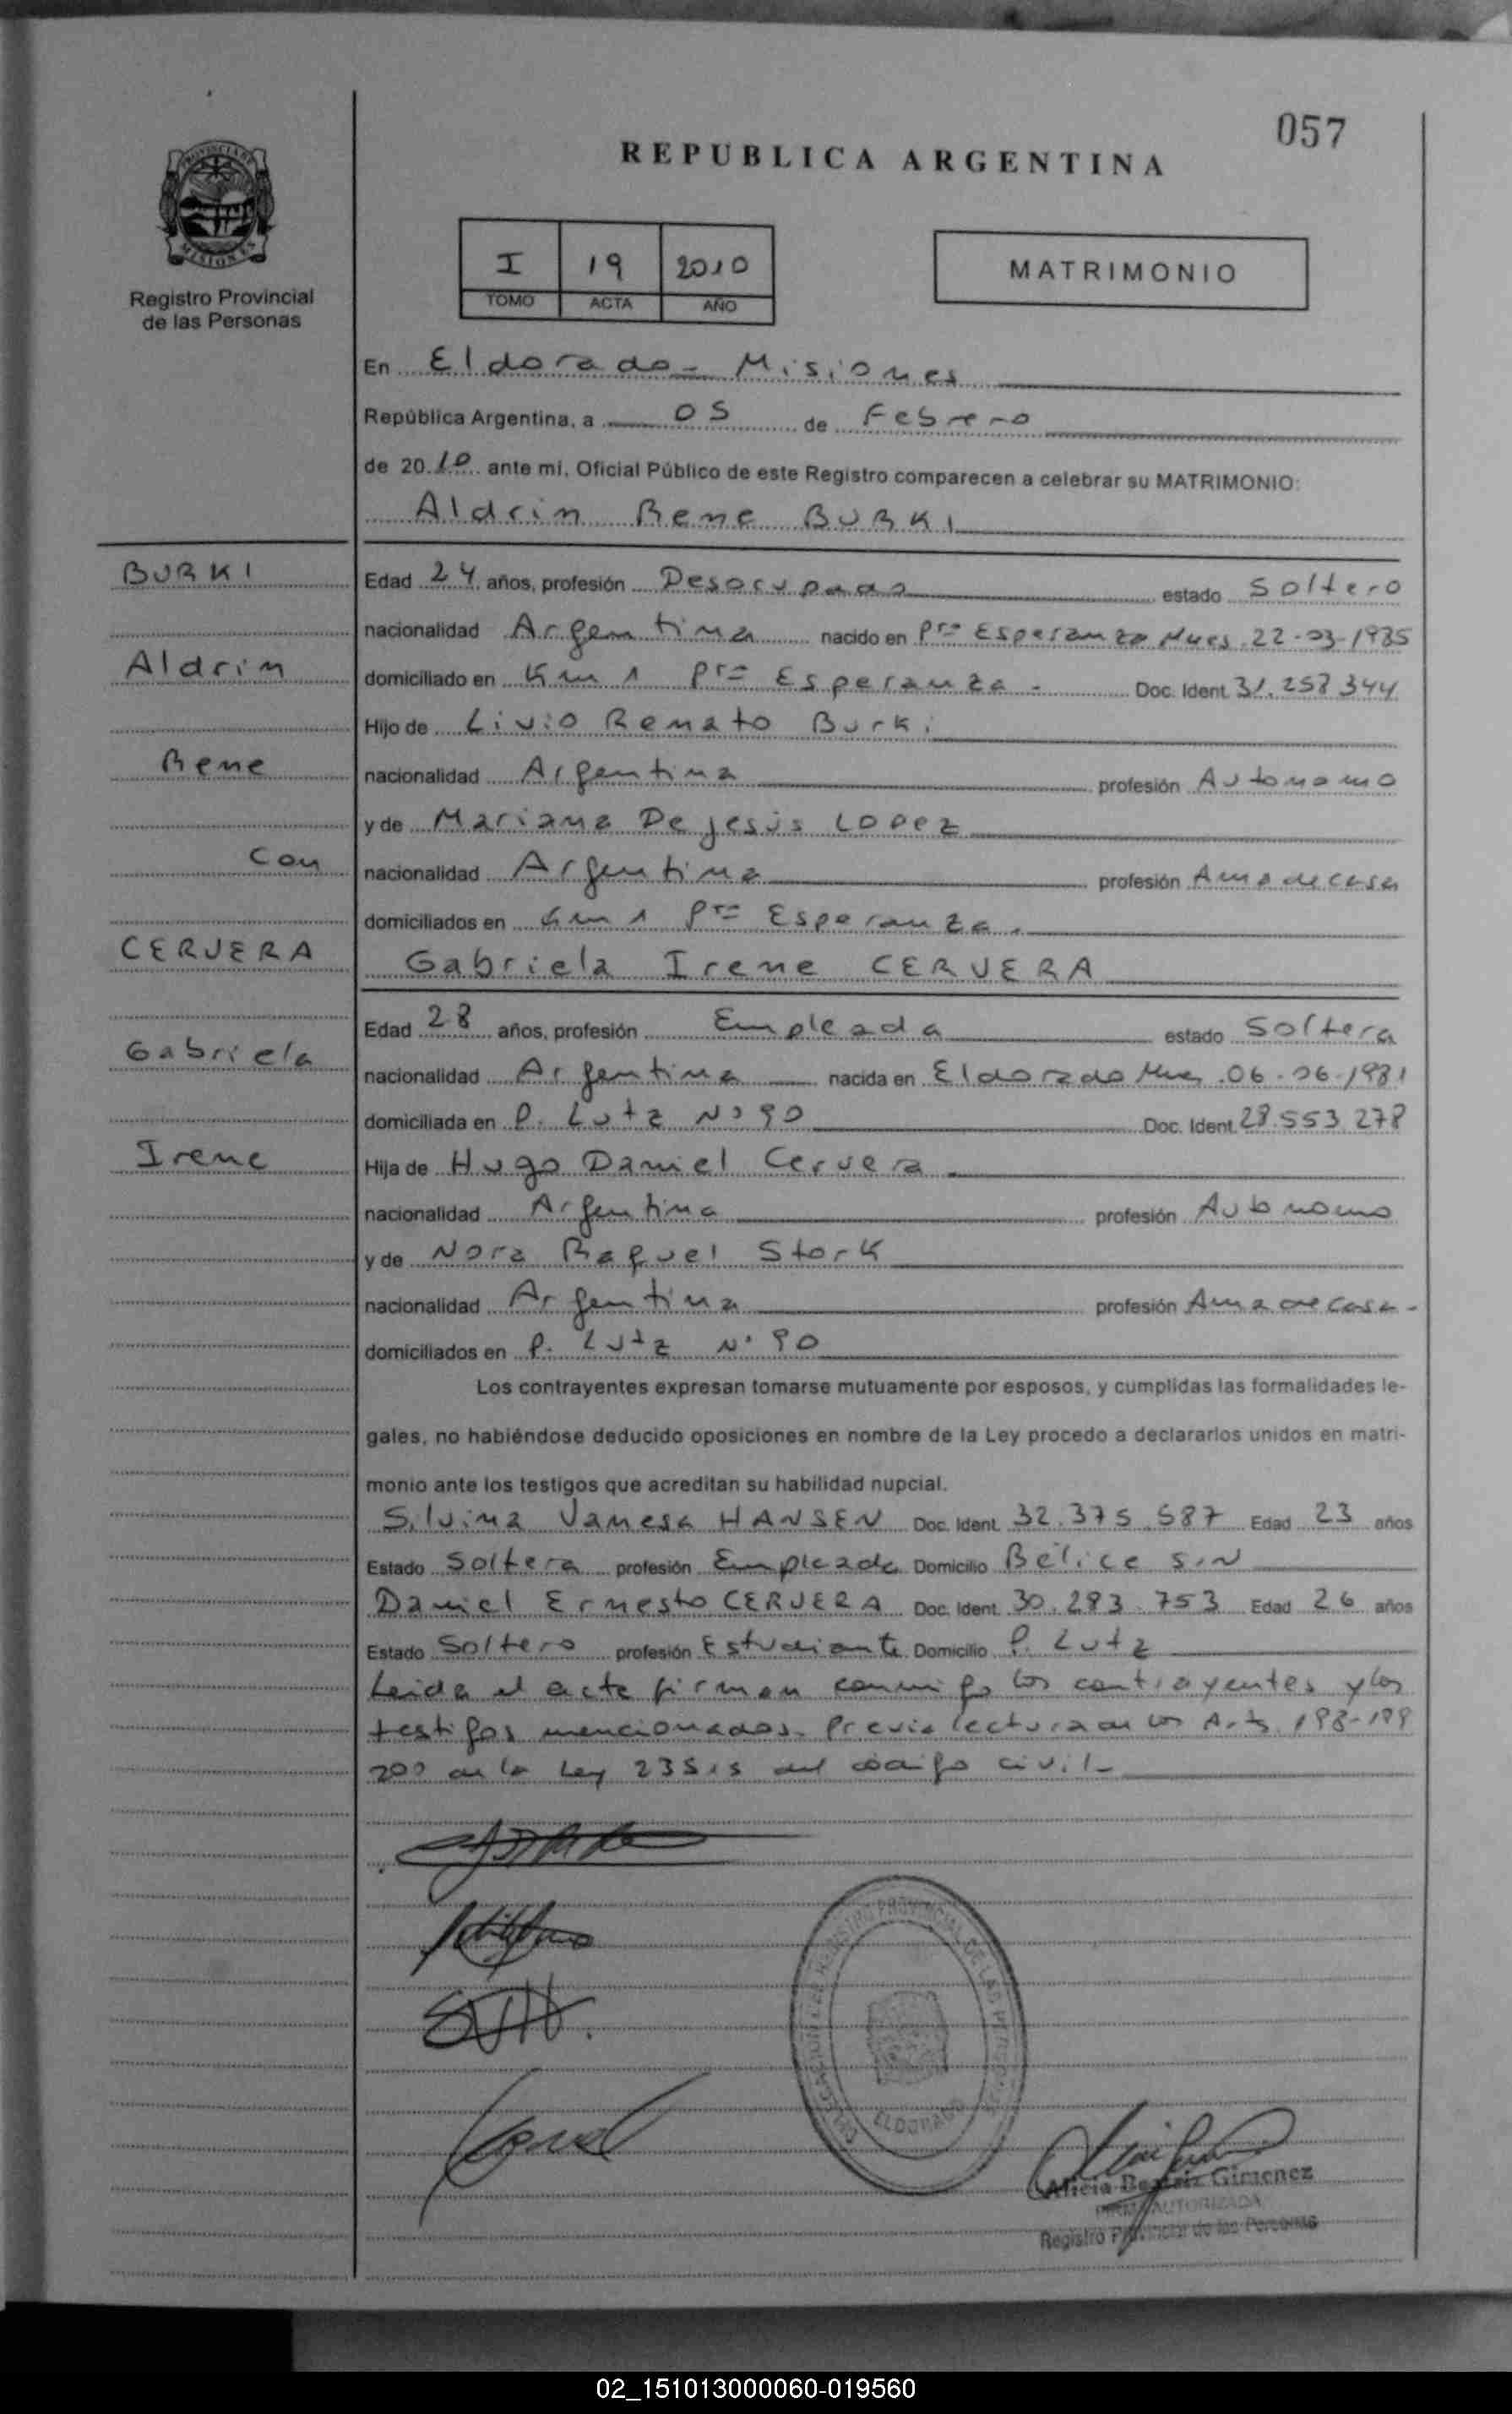 057
REPUBLICA ARGENTINA
PROVINCIA DE
MISIONES
Registro Provincial
de las Personas
I 19 2010
TOMO ACTA AÑO
MATRIMONIO
En Eldorado - Misiones
República Argentina, a 05 de Febrero
de 2010 ante mí, Oficial Público de este Registro comparecen a celebrar su MATRIMONIO:
Aldrin Rene BURKI
BURKI
Aldrin
Rene
Con
CERVERA
Gabriela
Irene
Edad 24 años, profesión Desocupado estado Soltero
nacionalidad Argentina nacido en Pto Esperanza Mnes. 22-03-1985
domiciliado en Km 1 Pto Esperanza - Doc. Ident. 31.257.344
Hijo de Livio Renato Burki
nacionalidad Argentina profesión Autonomo
y de Mariana De Jesús Lopez
nacionalidad Argentina profesión Ama de casa
domiciliados en Km 1 Pto Esperanza.
Gabriela Irene CERVERA
Edad 28 años, profesión Empleada estado Soltera
nacionalidad Argentina nacida en Eldorado Mnes. 06-06-1981
domiciliada en P. Lutz Nº 90 Doc. Ident. 28.553.278
Hija de Hugo Daniel Cervera
nacionalidad Argentina profesión Autonomo
y de Nora Raquel Stork
nacionalidad Argentina profesión Ama de casa -
domiciliados en P. Lutz Nº 90
Los contrayentes expresan tomarse mutuamente por esposos, y cumplidas las formalidades le-
gales, no habiéndose deducido oposiciones en nombre de la Ley procedo a declararlos unidos en matri-
monio ante los testigos que acreditan su habilidad nupcial.
Silvina Vanesa HANSEN Doc. Ident. 32.375.587 Edad 23 años
Estado Soltera profesión Empleada Domicilio Belice S.N
Daniel Ernesto CERVERA Doc. Ident. 30.293.753 Edad 26 años
Estado Soltero profesión Estudiante Domicilio P. Lutz
Leida el acta firman conmigo los contrayentes y los
testigos mencionados. Previa lectura de los Arts. 198-199
200 de la Ley 23515 del código civil.
REGISTRO PROVINCIAL DE LAS PERSONAS
ELDORADO
Alicia Beatriz Gimenez
FIRMA AUTORIZADA
Registro Provincial de las Personas
02_151013000060-019560